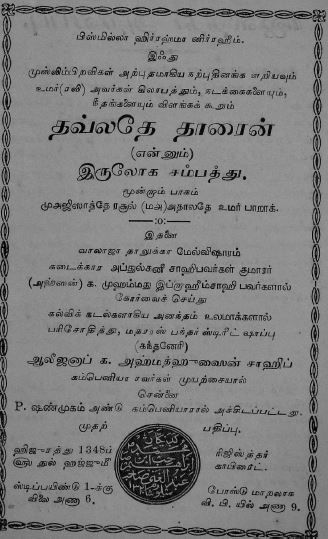 பிஸ்மில்லா ஹிர்ரஹ்மா னிர்ரஹீம்.
இஃது
முஸ்லிம்பிறவிகள் அற்புதமாகிய கற்புதினங்க ளறியவும்
உமர் (ரலி) அவர்கள் கிலாபத்தும், நடக்கைகளையும்,
நீதங்களையும் விளங்கக் கூறும்
தவ்லதே தாரைன்
(என்னும்)
இருலோக சம்பத்து.
மூன்றும் பாகம்
முஅஜிஸாத்தே ரசூல் (மஅ) அதாலதே உமர் பாறூக்.
——:o:——
இதனை
வாலாஜா தாலுக்கா மேல்விஷாரம்
கடைக்கார அப்துல்கனீ சாஹிபவர்கள் குமாரர்
(அஹ்ஸன்) க. முஹம்மது இப்றாஹீம்சாஹி பவர்களால்
கோர்வைச் செய்து
கல்விக் கடல்களாகிய அனந்தம் உலமாக்களால்
பரிசோதித்து, மதராஸ் பந்தர் ஸ்டிரீட் ஷாப்பு
(கந்தனேரி)
ஆலீஜனாப் க. அஹ்மத்ஹுஸைன் சாஹிப்
கம்பெனியா ரவர்கள் முயற்சையால்
சென்னை
P. ஷண்முகம் அண்டு கம்பெனியாரால் அச்சிடப்பட்டது.
முதற் பதிப்பு.
ஹிஜுரத்து 1348ஹ்
துல் ஹஜ்ஜுமீ
ரிஜிஸ்த்தர்
காபிரைட்.
ஸ்டிப்பயிண்டு 1-க்கு
விலை அணா 6.
போஸ்டு மாறலாக
வி. பி. யில் அணா 9.